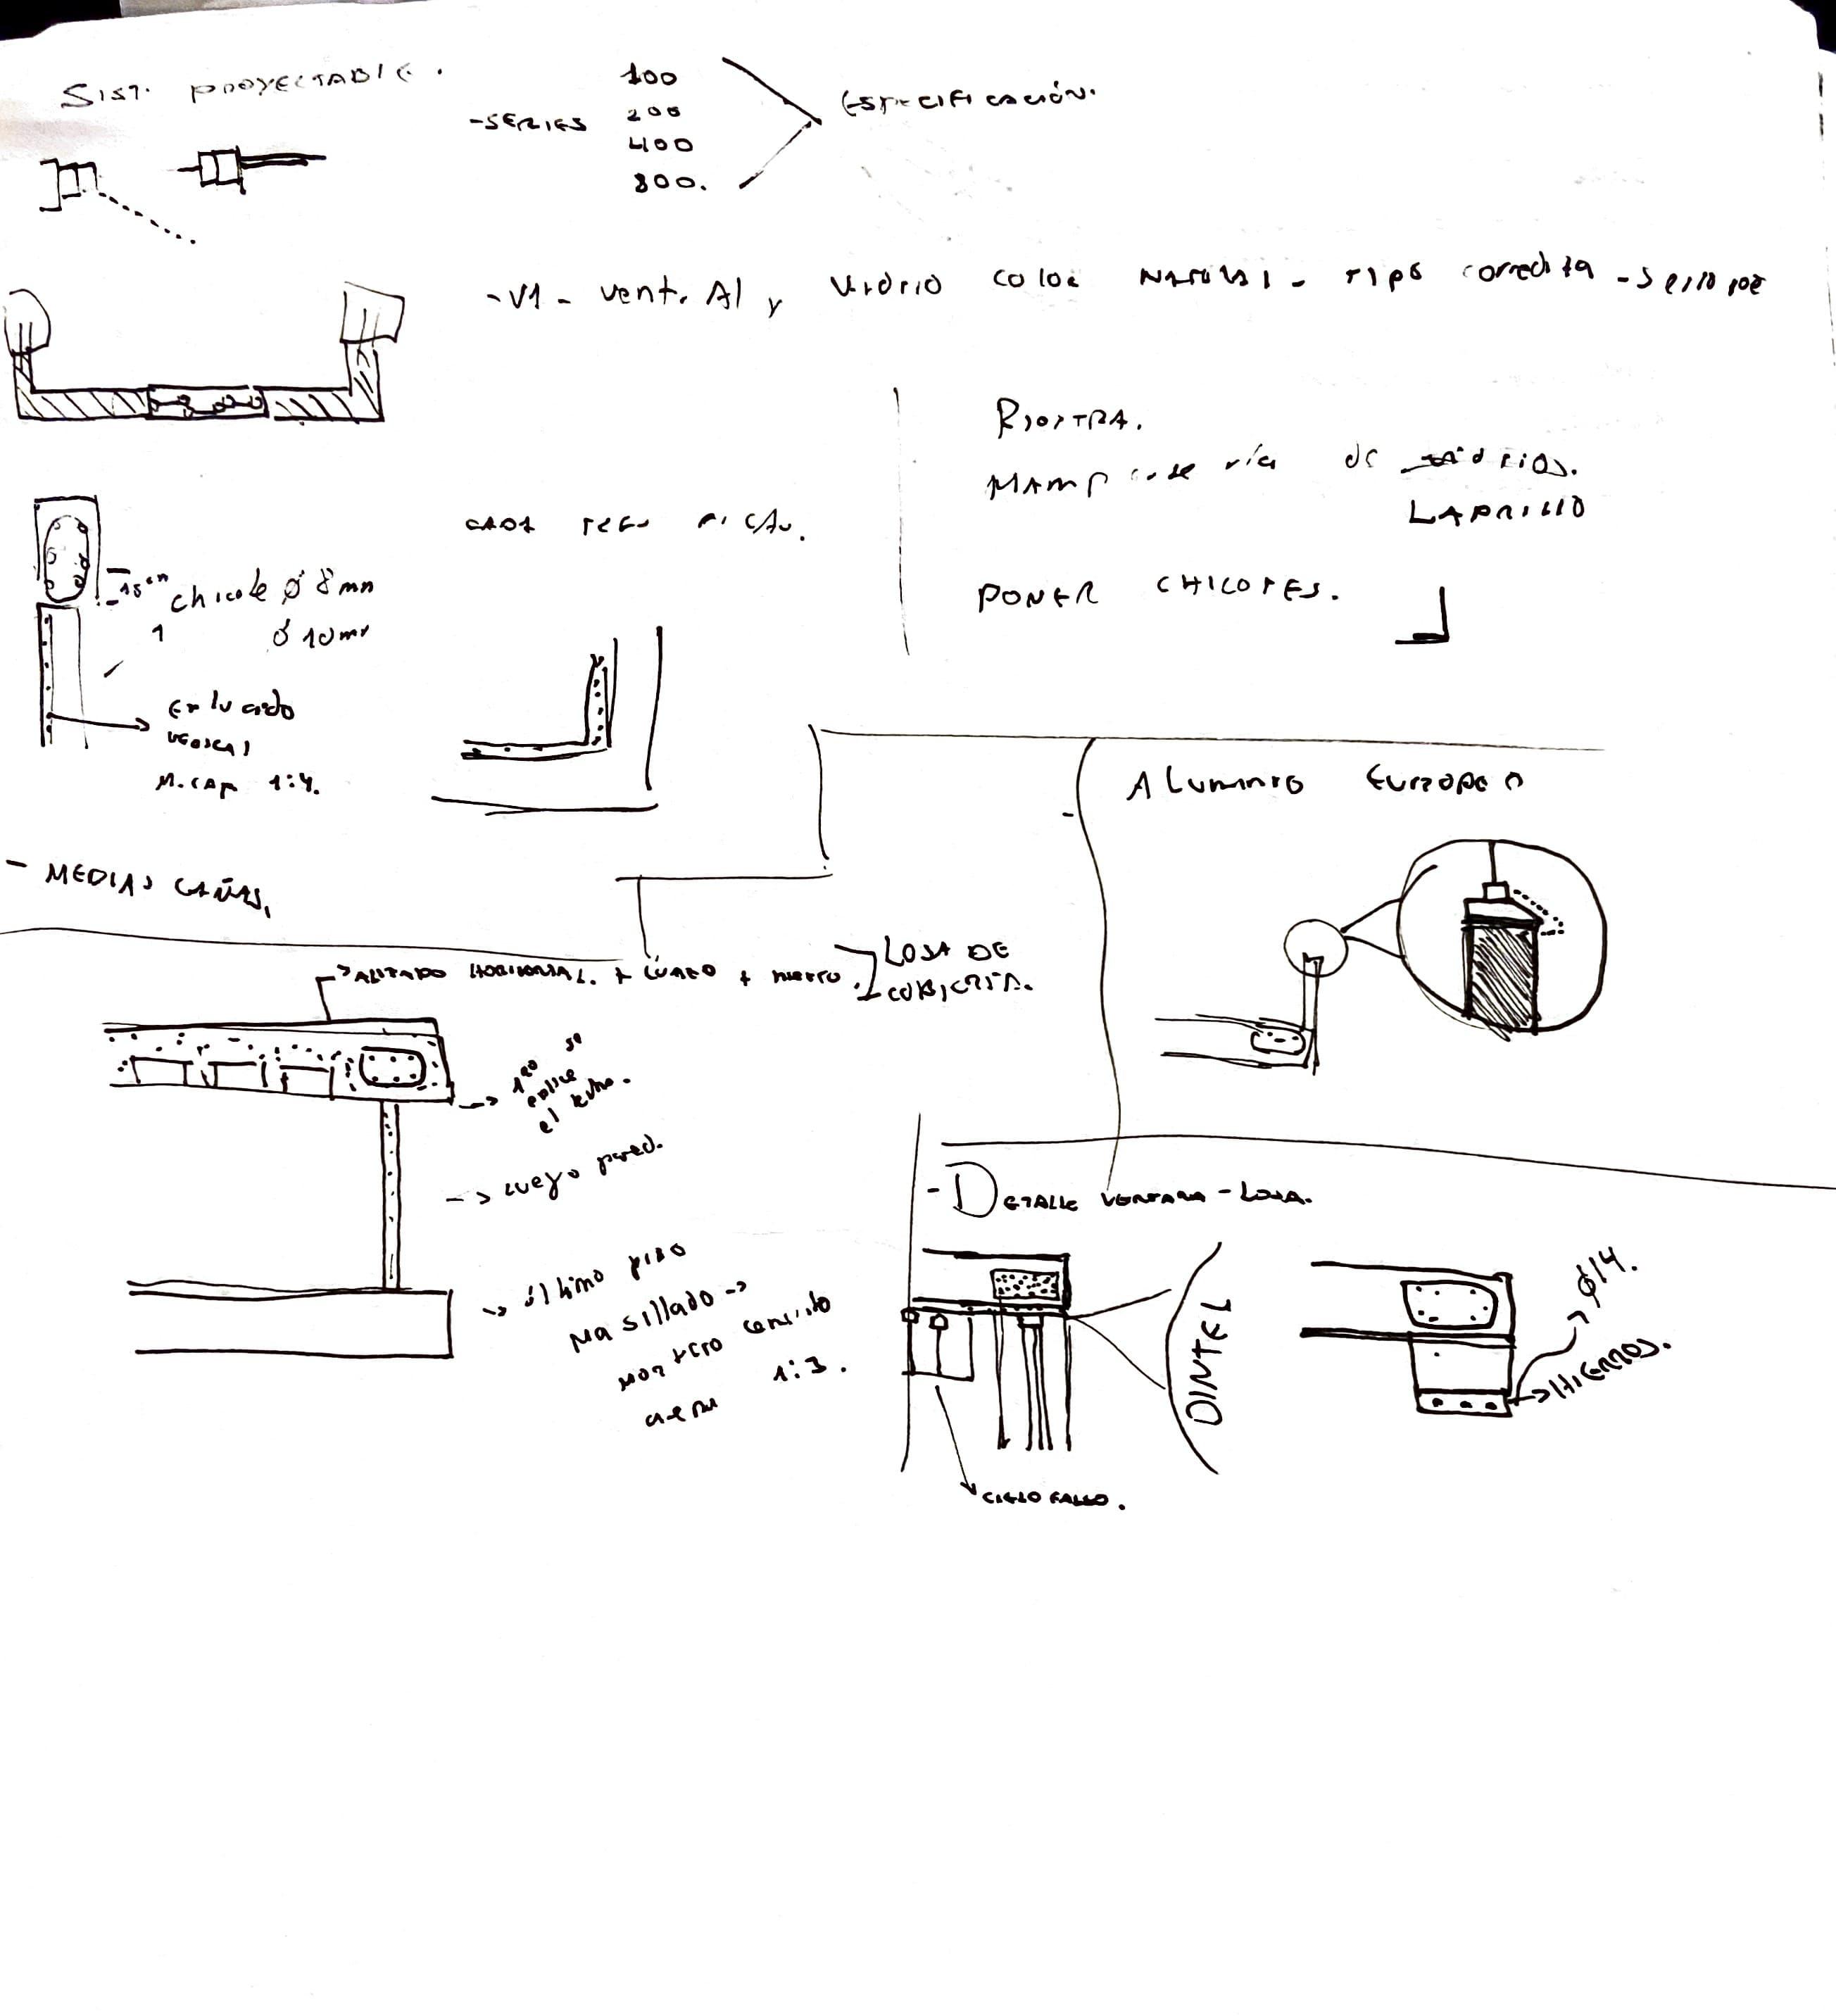 SIST. PROYECTABLE.
-SERIES
100
200
400
800.
ESPECIFICACIÓN.
-V1- vent. Al y vidrio color NATURAL - TIPO corrediza - serie 100
RIOSTRA.
MAMPOSTERÍA DE
LADRILLO
PONER CHICOTES.
CADA
15cm
chicote Ø 8mm
1 Ø 10mm
Enlucido
M. CAP 1:4.
- MEDIAS CAÑAS,
ALISADO HORIZONTAL. +
LOSA DE
CUBIERTA.
1ro se
enluce
el
-> Luego pared.
-> último piso
Masillado ->
mortero cemento
arena 1:3.
ALUMINIO EUROPEO
- DETALLE VENTANA - LOSA.
DINTEL
CIELO FALSO.
Ø14.
HIERROS.